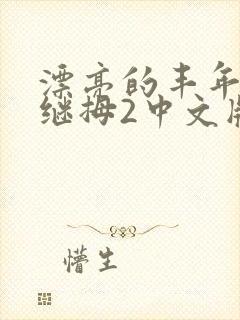 漂亮的丰年
继拇2中文版
懵生